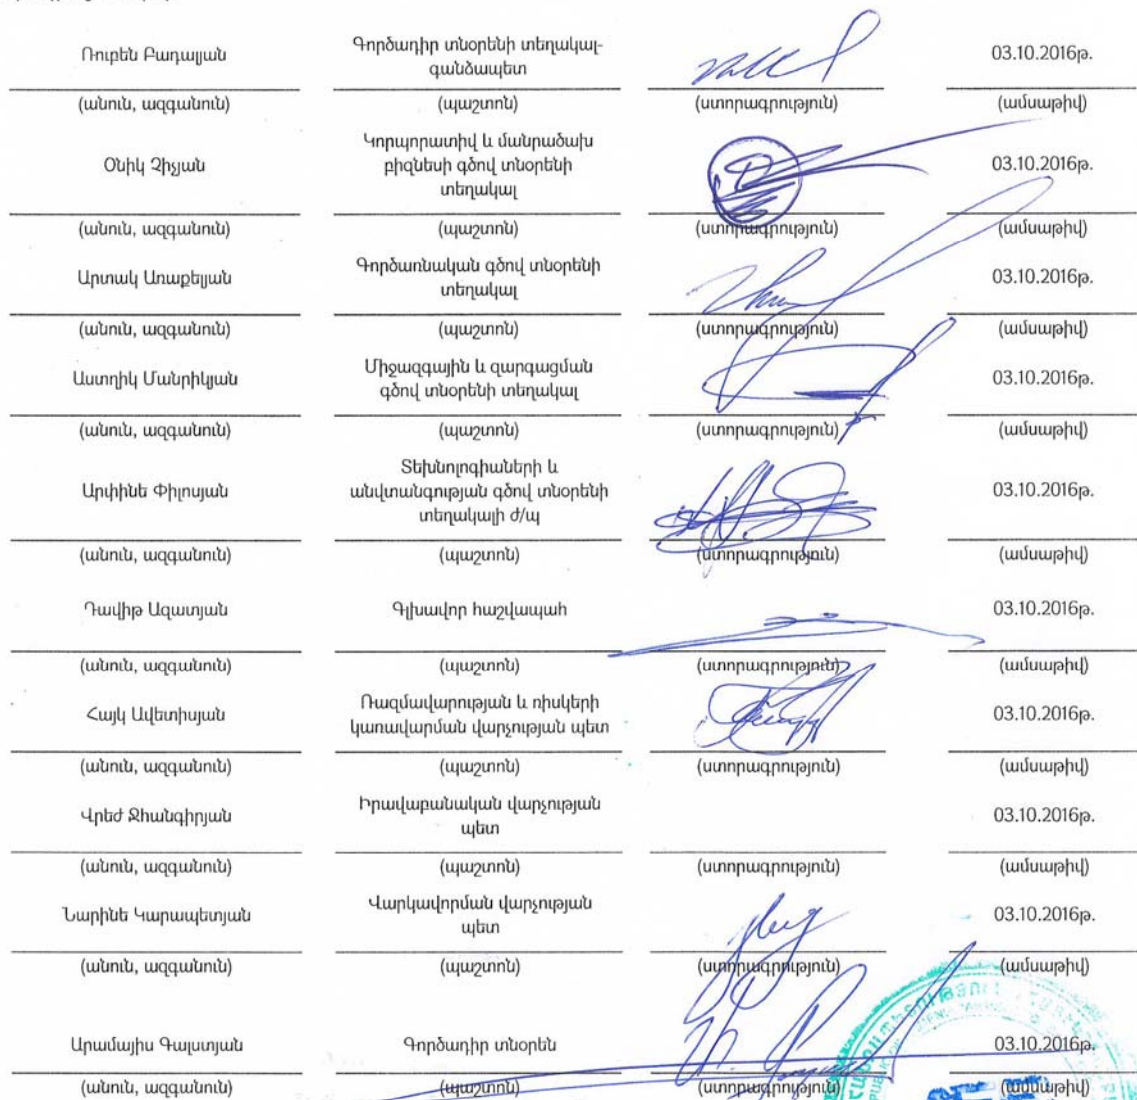 Ռուբեն Բադալյան
Գործադիր տնօրենի տեղակալ-
գանձապետ
03.10.2016թ.
(անուն, ազգանուն) (պաշտոն) (ստորագրություն) (ամսաթիվ)
Օնիկ Չիչյան
Կորպորատիվ և մանրածախ
բիզնեսի գծով տնօրենի
տեղակալ
03.10.2016թ.
(անուն, ազգանուն) (պաշտոն) (ստորագրություն) (ամսաթիվ)
Արտակ Առաքելյան
Գործառնական գծով տնօրենի
տեղակալ
03.10.2016թ.
(անուն, ազգանուն) (պաշտոն) (ստորագրություն) (ամսաթիվ)
Աստղիկ Մանրիկյան
Միջազգային և զարգացման
գծով տնօրենի տեղակալ
03.10.2016թ.
(անուն, ազգանուն) (պաշտոն) (ստորագրություն) (ամսաթիվ)
Արփինե Փիլոսյան
Տեխնոլոգիաների և
անվտանգության գծով տնօրենի
տեղակալի ժ/պ
03.10.2016թ.
(անուն, ազգանուն) (պաշտոն) (ստորագրություն) (ամսաթիվ)
Դավիթ Ազատյան
Գլխավոր հաշվապահ
03.10.2016թ.
(անուն, ազգանուն) (պաշտոն) (ստորագրություն) (ամսաթիվ)
Հայկ Ավետիսյան
Ռազմավարության և ռիսկերի
կառավարման վարչության պետ
03.10.2016թ.
(անուն, ազգանուն) (պաշտոն) (ստորագրություն) (ամսաթիվ)
Վրեժ Ջհանգիրյան
Իրավաբանական վարչության
պետ
03.10.2016թ.
(անուն, ազգանուն) (պաշտոն) (ստորագրություն) (ամսաթիվ)
Նարինե Կարապետյան
Վարկավորման վարչության
պետ
03.10.2016թ.
(անուն, ազգանուն) (պաշտոն) (ստորագրություն) (ամսաթիվ)
Արամայիս Գալստյան
Գործադիր տնօրեն
03.10.2016թ.
(անուն, ազգանուն) (պաշտոն) (ստորագրություն) (ամսաթիվ)